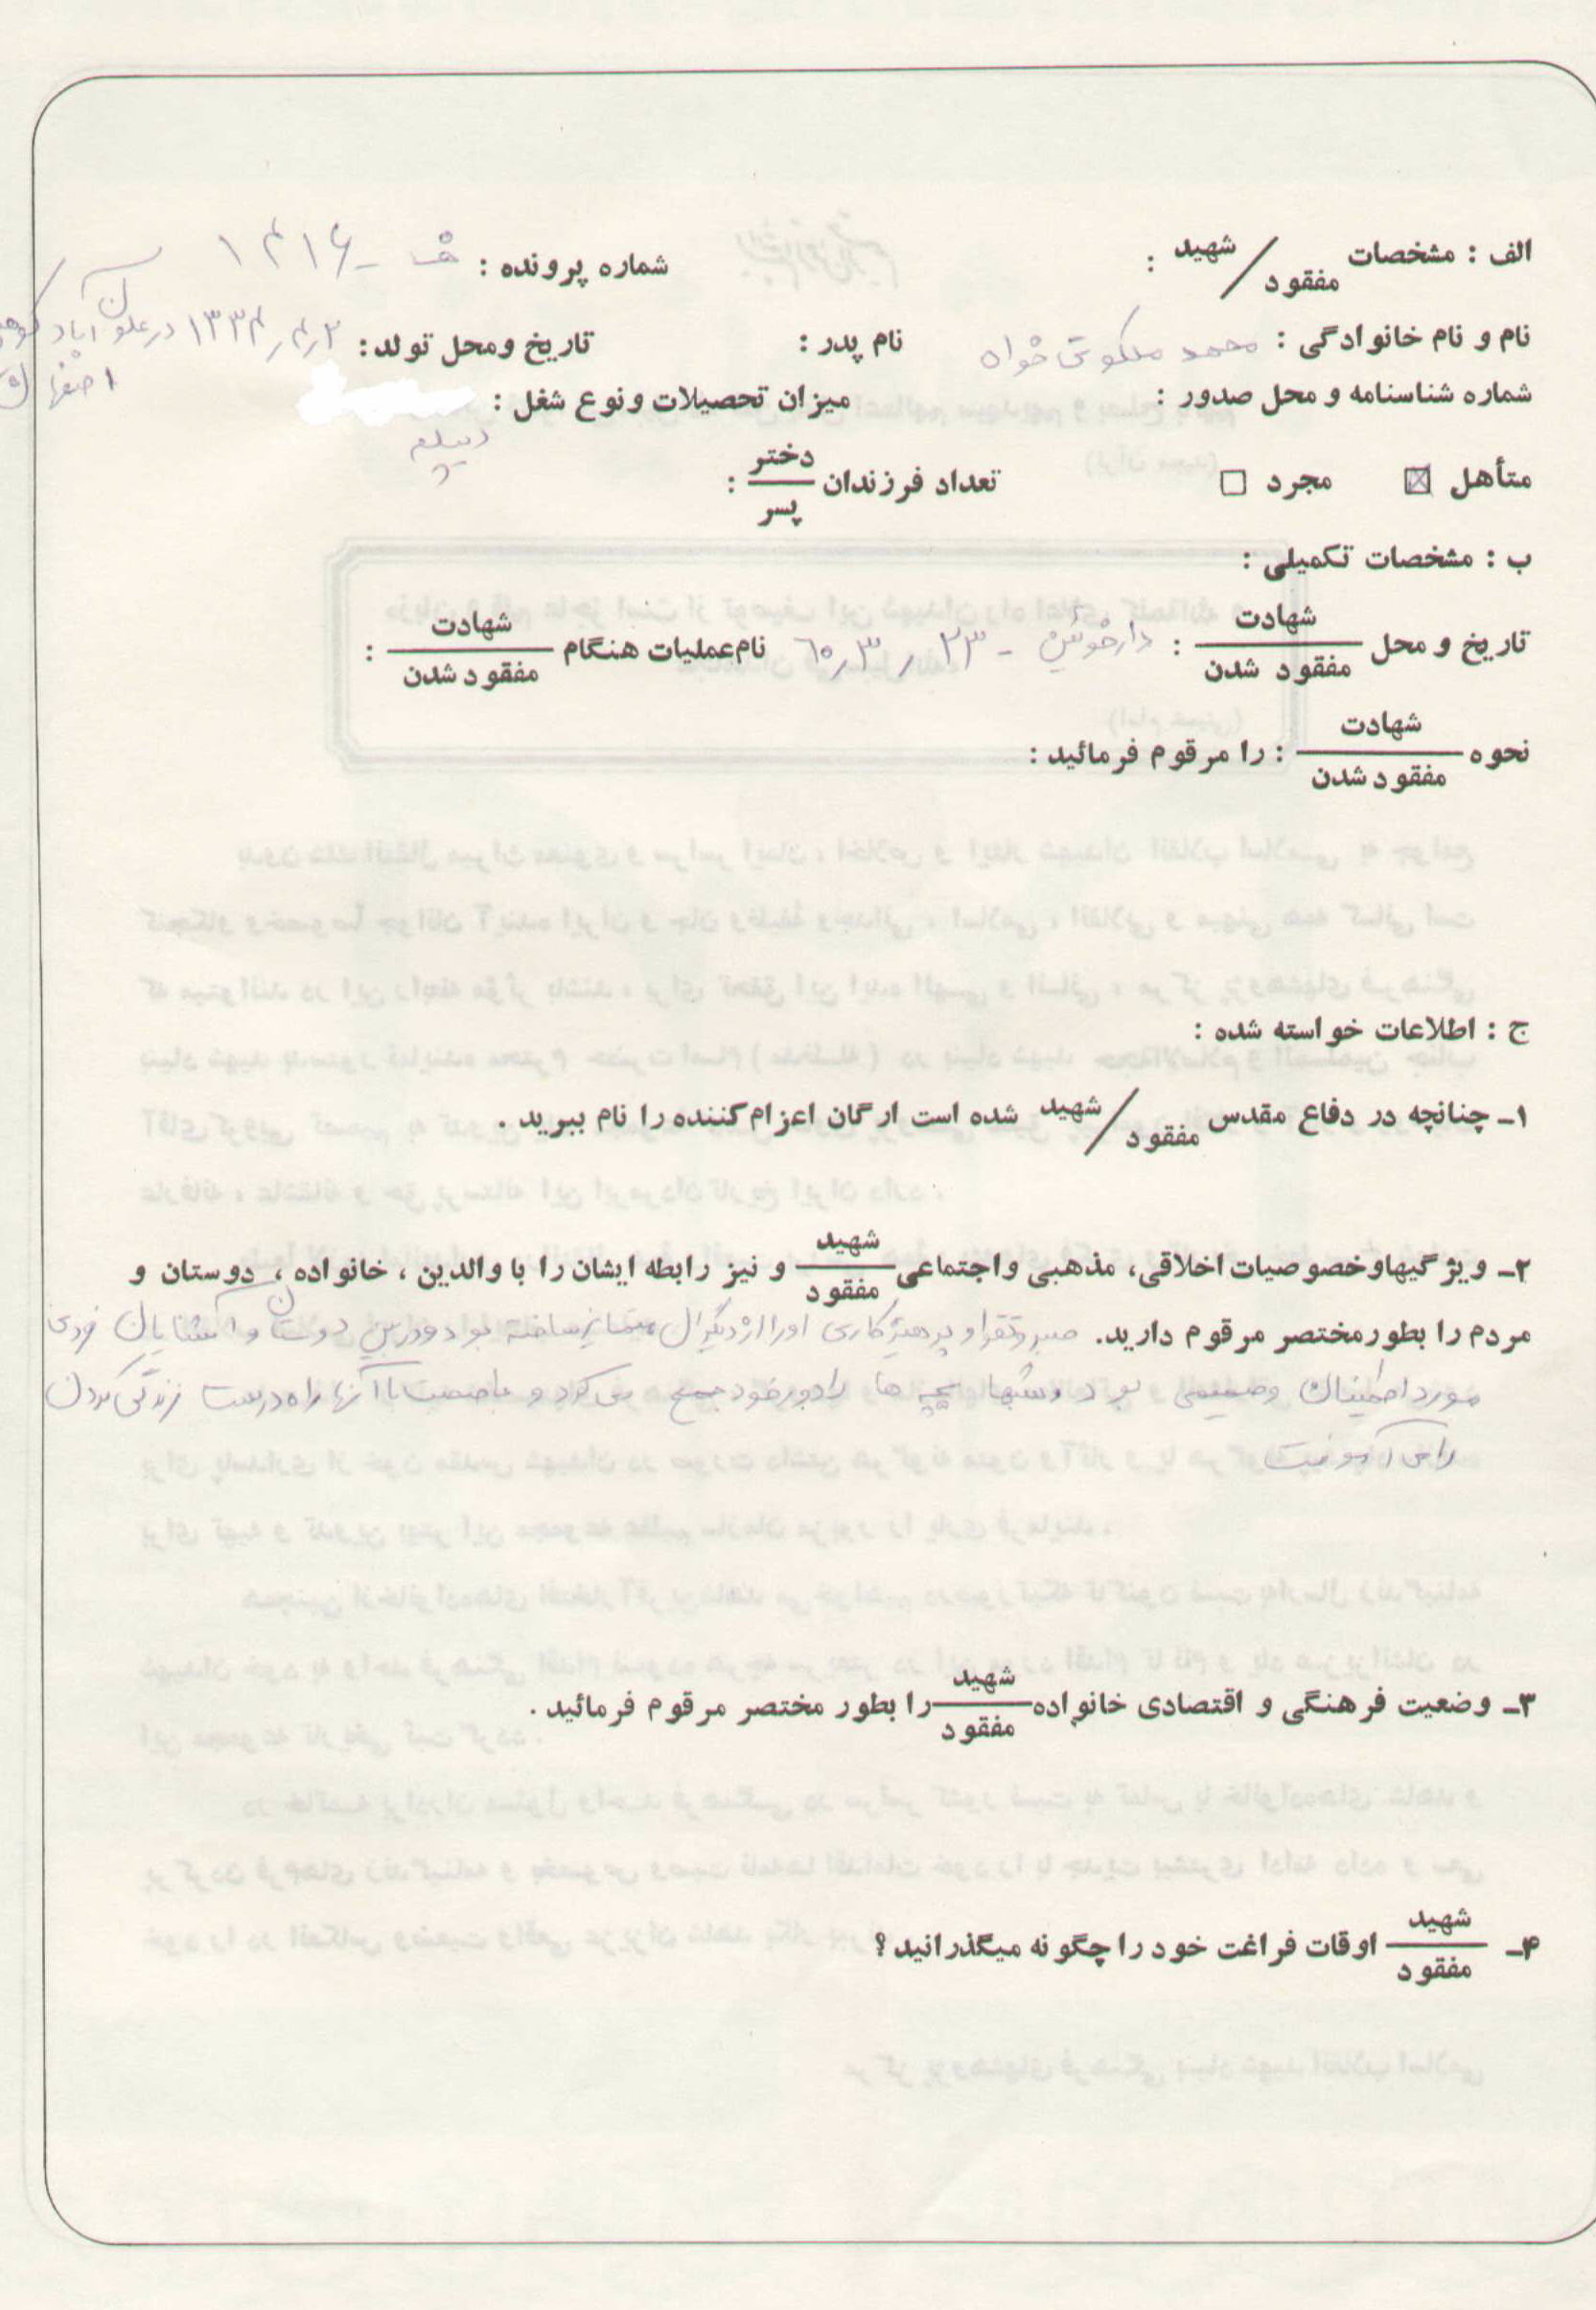 الف : مشخصات شهید / مفقود : شماره پرونده : ف - ۱۴۱۶
نام و نام خانوادگی : محمد ملکوتی خواه نام پدر : تاریخ ومحل تولد : ۲ر۴ر۱۳۳۴ در علون آباد
اصفهان
شماره شناسنامه و محل صدور : میزان تحصیلات ونوع شغل :
دیپلم
متأهل ☒ مجرد ☐ تعداد فرزندان دختر / پسر :
ب : مشخصات تکمیلی :
تاریخ و محل شهادت / مفقود شدن : دارخوئین - ۲۳ر۳ر٦۰ نام عملیات هنگام شهادت / مفقود شدن :
نحوه شهادت / مفقود شدن : را مرقوم فرمائید :
ج : اطلاعات خواسته شده :
۱- چنانچه در دفاع مقدس شهید / مفقود شده است ارگان اعزام کننده را نام ببرید .
۲- ویژگیهاوخصوصیات اخلاقی، مذهبی واجتماعی شهید / مفقود و نیز رابطه ایشان را با والدین ، خانواده ، دوستان و
مردم را بطورمختصر مرقوم دارید. صبر وتقوا و پرهیزکاری اورا از دیگران متمایز ساخته بود ودربین دوستان و آشنایان فردی
مورد اطمینان وصمیمی بود وشبها بچه ها را دور خود جمع می کرد و با صحبت با آنها راه درست زندگی کردن
را می آموخت
۳- وضعیت فرهنگی و اقتصادی خانواده شهید / مفقود را بطور مختصر مرقوم فرمائید .
۴- شهید / مفقود اوقات فراغت خود را چگونه میگذرانید ؟